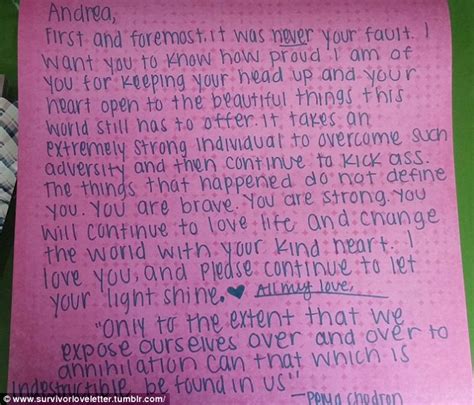 Andrea,
First and foremost, it was never your fault. I
want you to know how proud I am of
you for keeping your head up and your
heart open to the beautiful things this
world still has to offer. It takes an
extremely strong individual to overcome such
adversity and then continue to kick ass.
The things that happened do not define
you. You are brave. You are strong. You
will continue to love life and change
the world with your kind heart. I
love you, and please continue to let
your light shine. ♥ All my love,
"Only to the extent that we
expose ourselves over and over to
annihilation can that which is
indestructible be found in us"
-Pema Chodron
© www.survivorloveletter.tumblr.com/